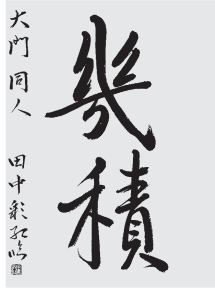 幾積
大門同人 田中彩 臨